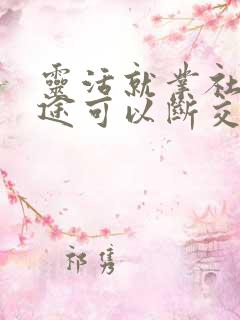 靈活就業社
途可以斷交
祁隽